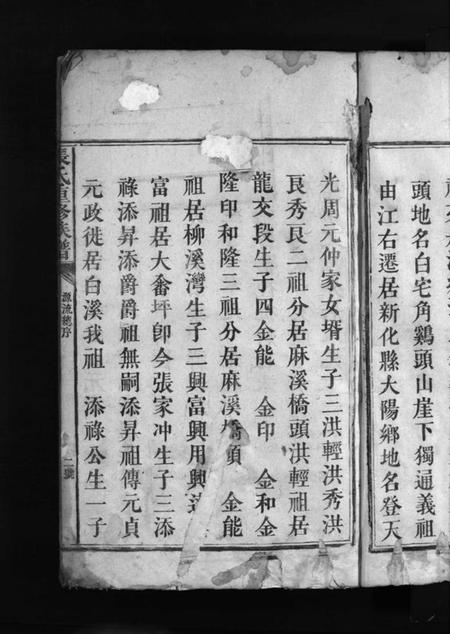 頭地名白宅角鷄頭山崖下獨逼義祖
由江右遷居新化縣大陽鄉地名登天
光周元仲家女壻生子三洪輕洪秀洪
艮秀艮二祖分居麻溪橋頭洪輕祖居
龍交段生子四金能 金印 金和金
隆印和隆三祖分居麻溪橋頭 金能
祖居柳溪灣生子三興富興用興
富祖居大畨坪卽今張家冲生子三添
祿添昇添爵爵祖無嗣添昇祖傳元貞
元政徙居白溪我祖 添祿公生一子
源流總序
二號